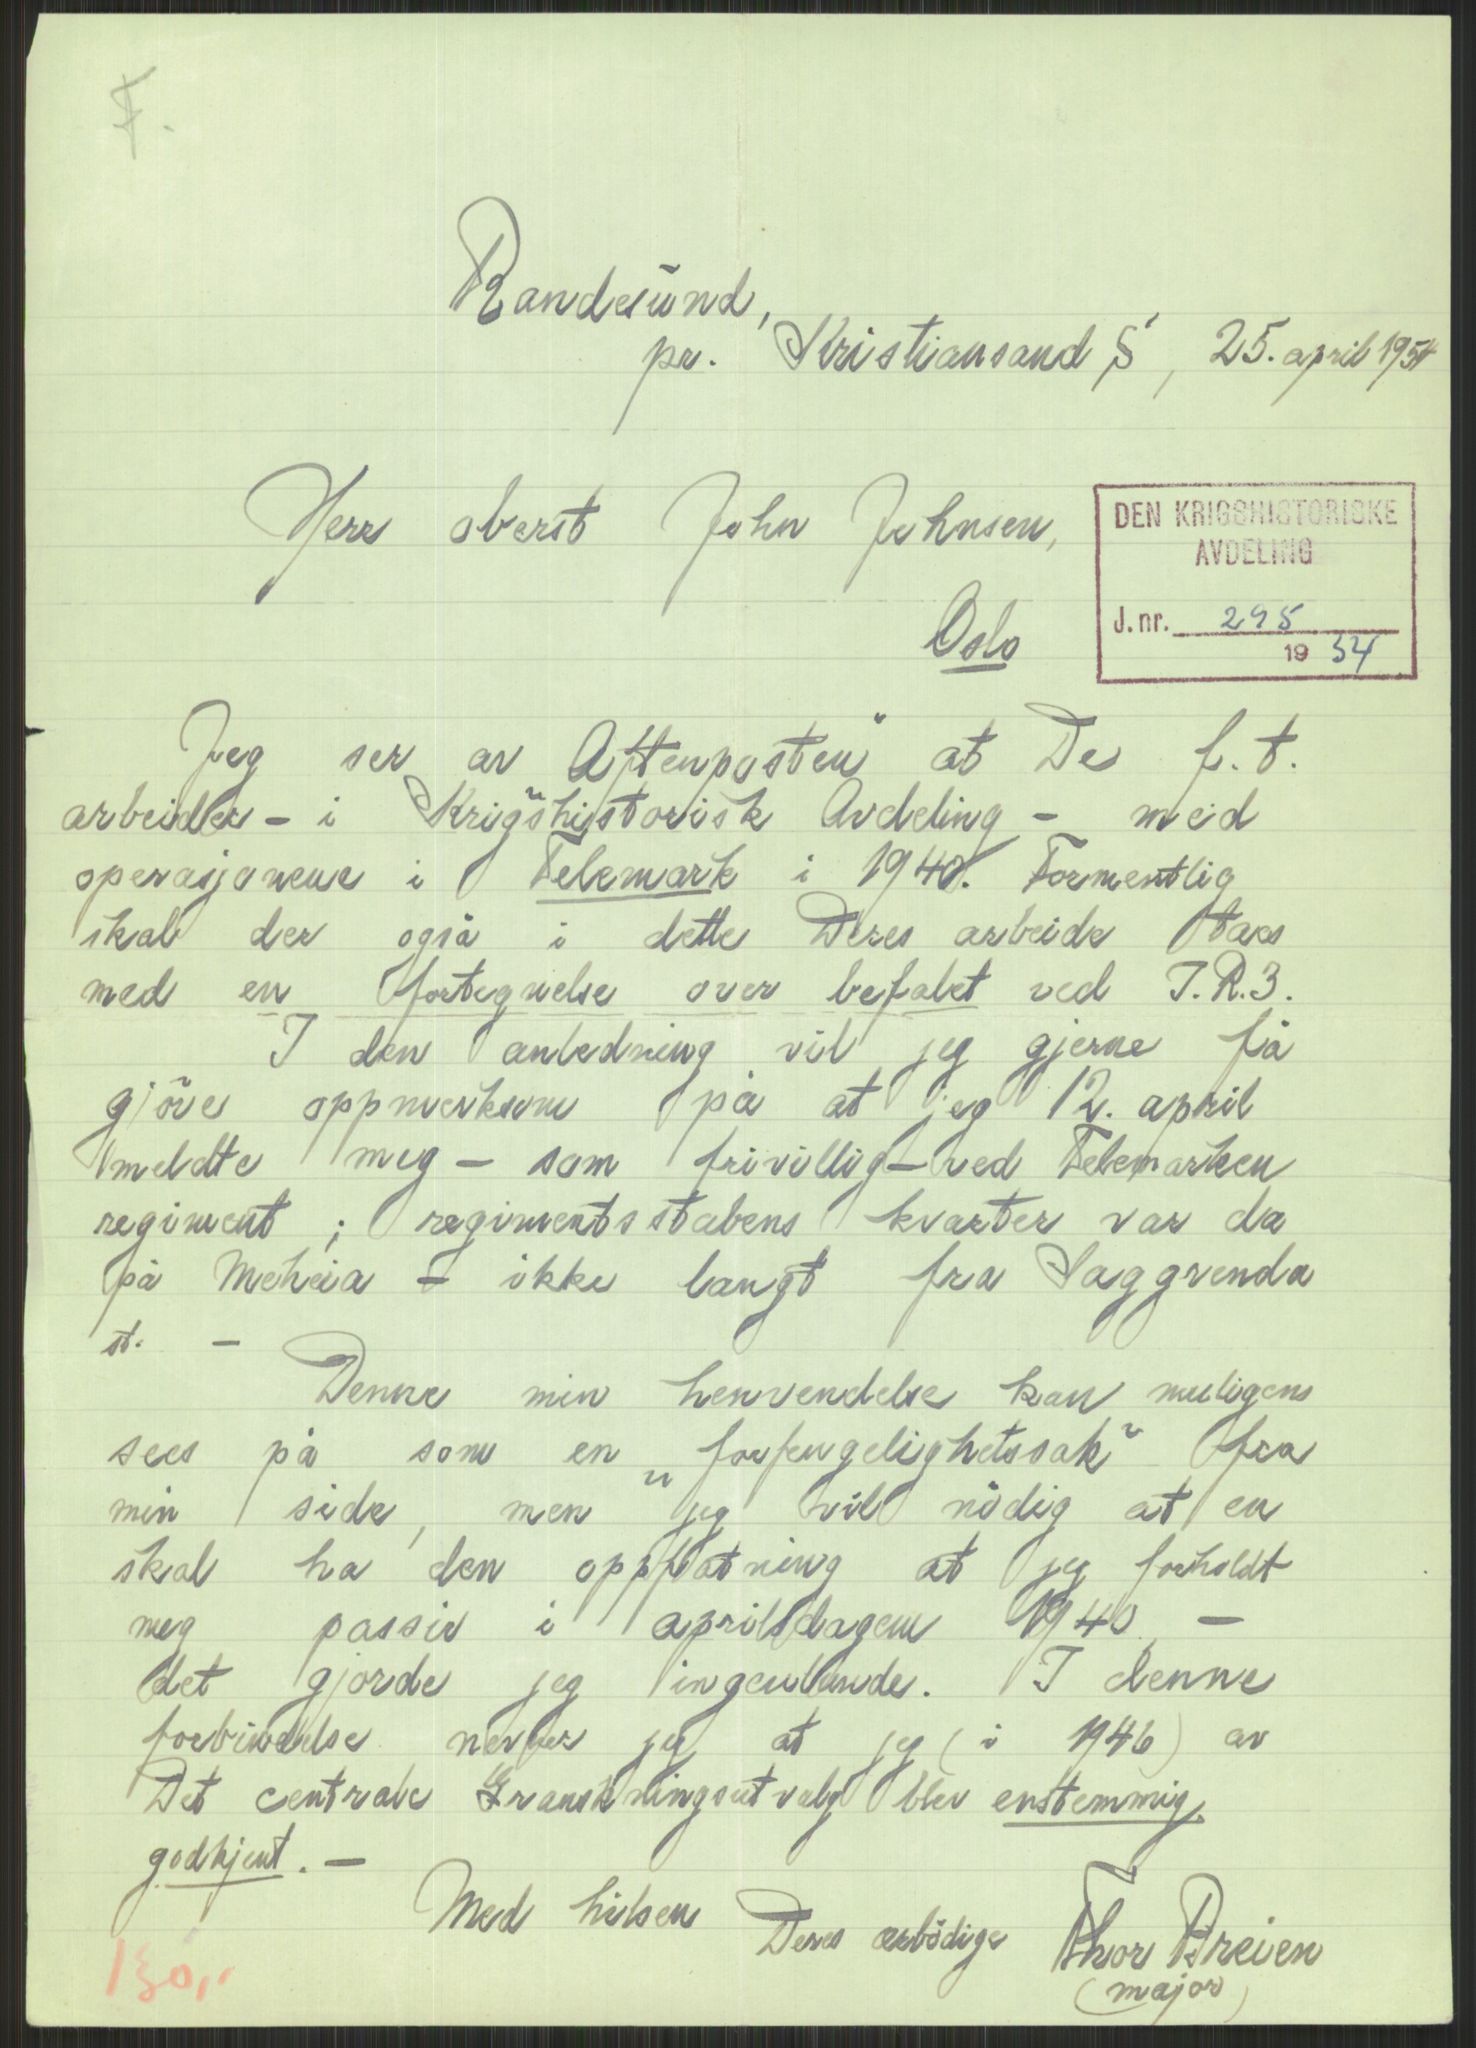 F.
Randesund,
pr. Kristiansand S, 25. april 1954
Herr oberst John Johnsen,
Oslo
DEN KRIGSHISTORISKE
AVDELING
J.nr. 295
19 54
Jeg ser av „Aftenposten" at De f.t.
arbeider - i Krigshistorisk Avdeling - med
operasjonene i Telemark i 1940. Formentlig
skal der også i dette Deres arbeide taes
med en fortegnelse over befalet ved I.R.3.
I den anledning vil jeg gjerne få
gjöre oppmerksom på at jeg 12. april
meldte meg - som frivillig - ved Telemarken
regiment; regimentsstabens kvarter var da
på Meheia - ikke langt fra Saggrenda
st. -
Denne min henvendelse kan muligens
sees på som en „forfengelighetssak" fra
min side, men jeg vil nödig at en
skal ha den oppfatning at jeg forholdt
meg passiv i aprildagene 1940 -
det gjorde jeg ingenlunde. I denne
forbindelse nevner jeg at jeg (i 1946) av
Det centrale Granskningsutvalg blev enstemmig
godkjent. -
Med hilsen Deres ærbödige Thor Breien
(major)
130,-